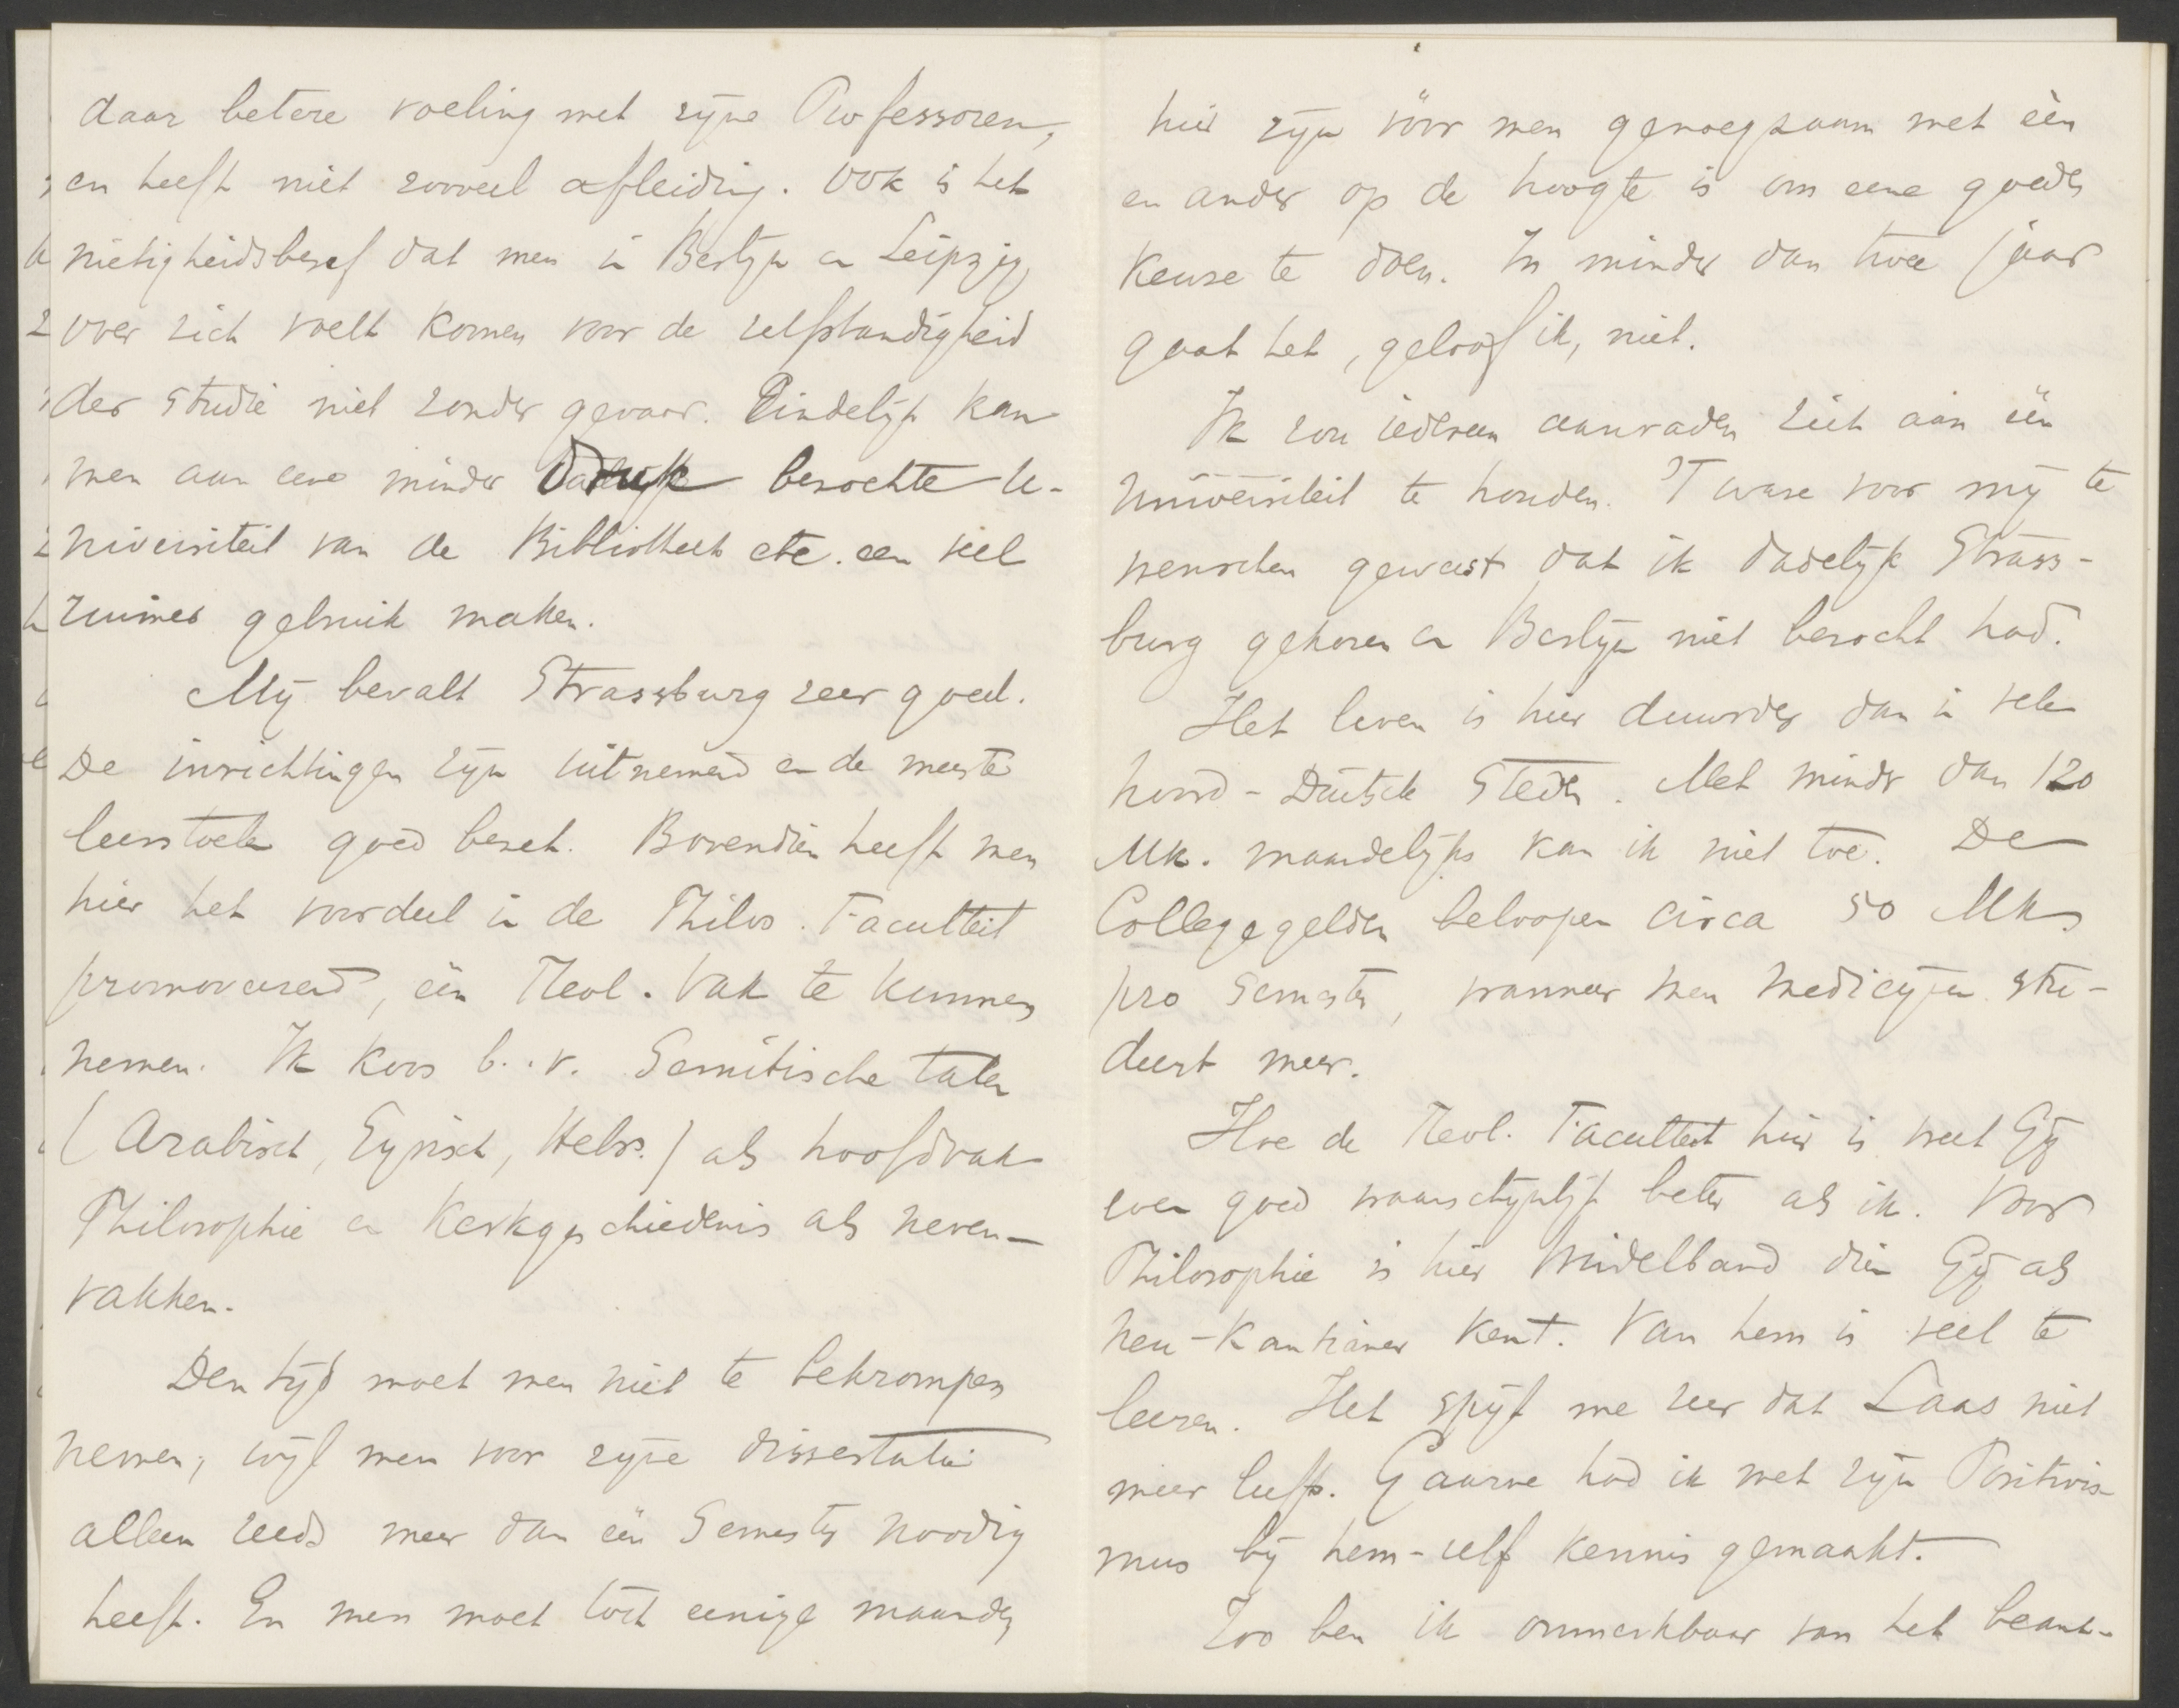 daar betere voeling met zyne Professoren,
en heeft niet zooveel afleiding. Ook is het
nietigheidsbesef dat men in Berlyn en Leipzig
over zich voelt komen voor de zelfstandigheid
der studie niet zonder gevaar. Eindelyk kan
men aan eene minder bezochte U-
niversiteit van de Bibliotheek etc. een veel
ruimer gebruik maken.
My bevalt Strassburg zeer goed.
De inrichtingen zyn uitnemend en de meeste
leerstoelen goed bezet. Bovendien heeft men
hier het voordeel in de Philos. Faculteit
promoveerend, één Theol. Vak te kunnen
nemen. Ik koos b.v. Semitische talen
(Arabisch, Syrisch, Hebr.) als hoofdvak
Philosophie en Kerkgeschiedenis als neven-
vakken.
Den tyd moet men niet te bekrompen
nemen, wyl men voor zyne dissertatie
alleen reeds meer dan één Semester noodig
heeft. En men moet toch eenige maanden
hier zyn vóór men genoegzaam met één
en ander op de hoogte is om eene goede
keuze te doen. In minder dan twee jaar
gaat het, geloof ik, niet.
Ik zou iedereen aanraden zich aan één
Universiteit te houden. 'T ware voor my te
wenschen geweest dat ik dadelyk Strass-
burg gekozen en Berlyn niet bezocht had.
Het leven is hier duurder dan in vele
Noord-Duitsche Steden. Met minder dan 120
Mk. maandelyks kan ik niet toe. De
Collegegelden beloopen circa 50 Mk.
pro Semester, wanneer men medicynen stu-
deert meer.
Hoe de Theol. Faculteit hier is weet Gy
even goed waarschynlyk beter als ik. Voor
Philosophie is hier Windelband dien Gy als
Neu-Kantianer kent. Van hem is veel te
leeren. Het spyt me zeer dat Laas niet
meer leeft. Gaarne had ik met zyn Positivis-
mus by hem-zelf kennis gemaakt.
Zoo ben ik onmerkbaar van het beant-